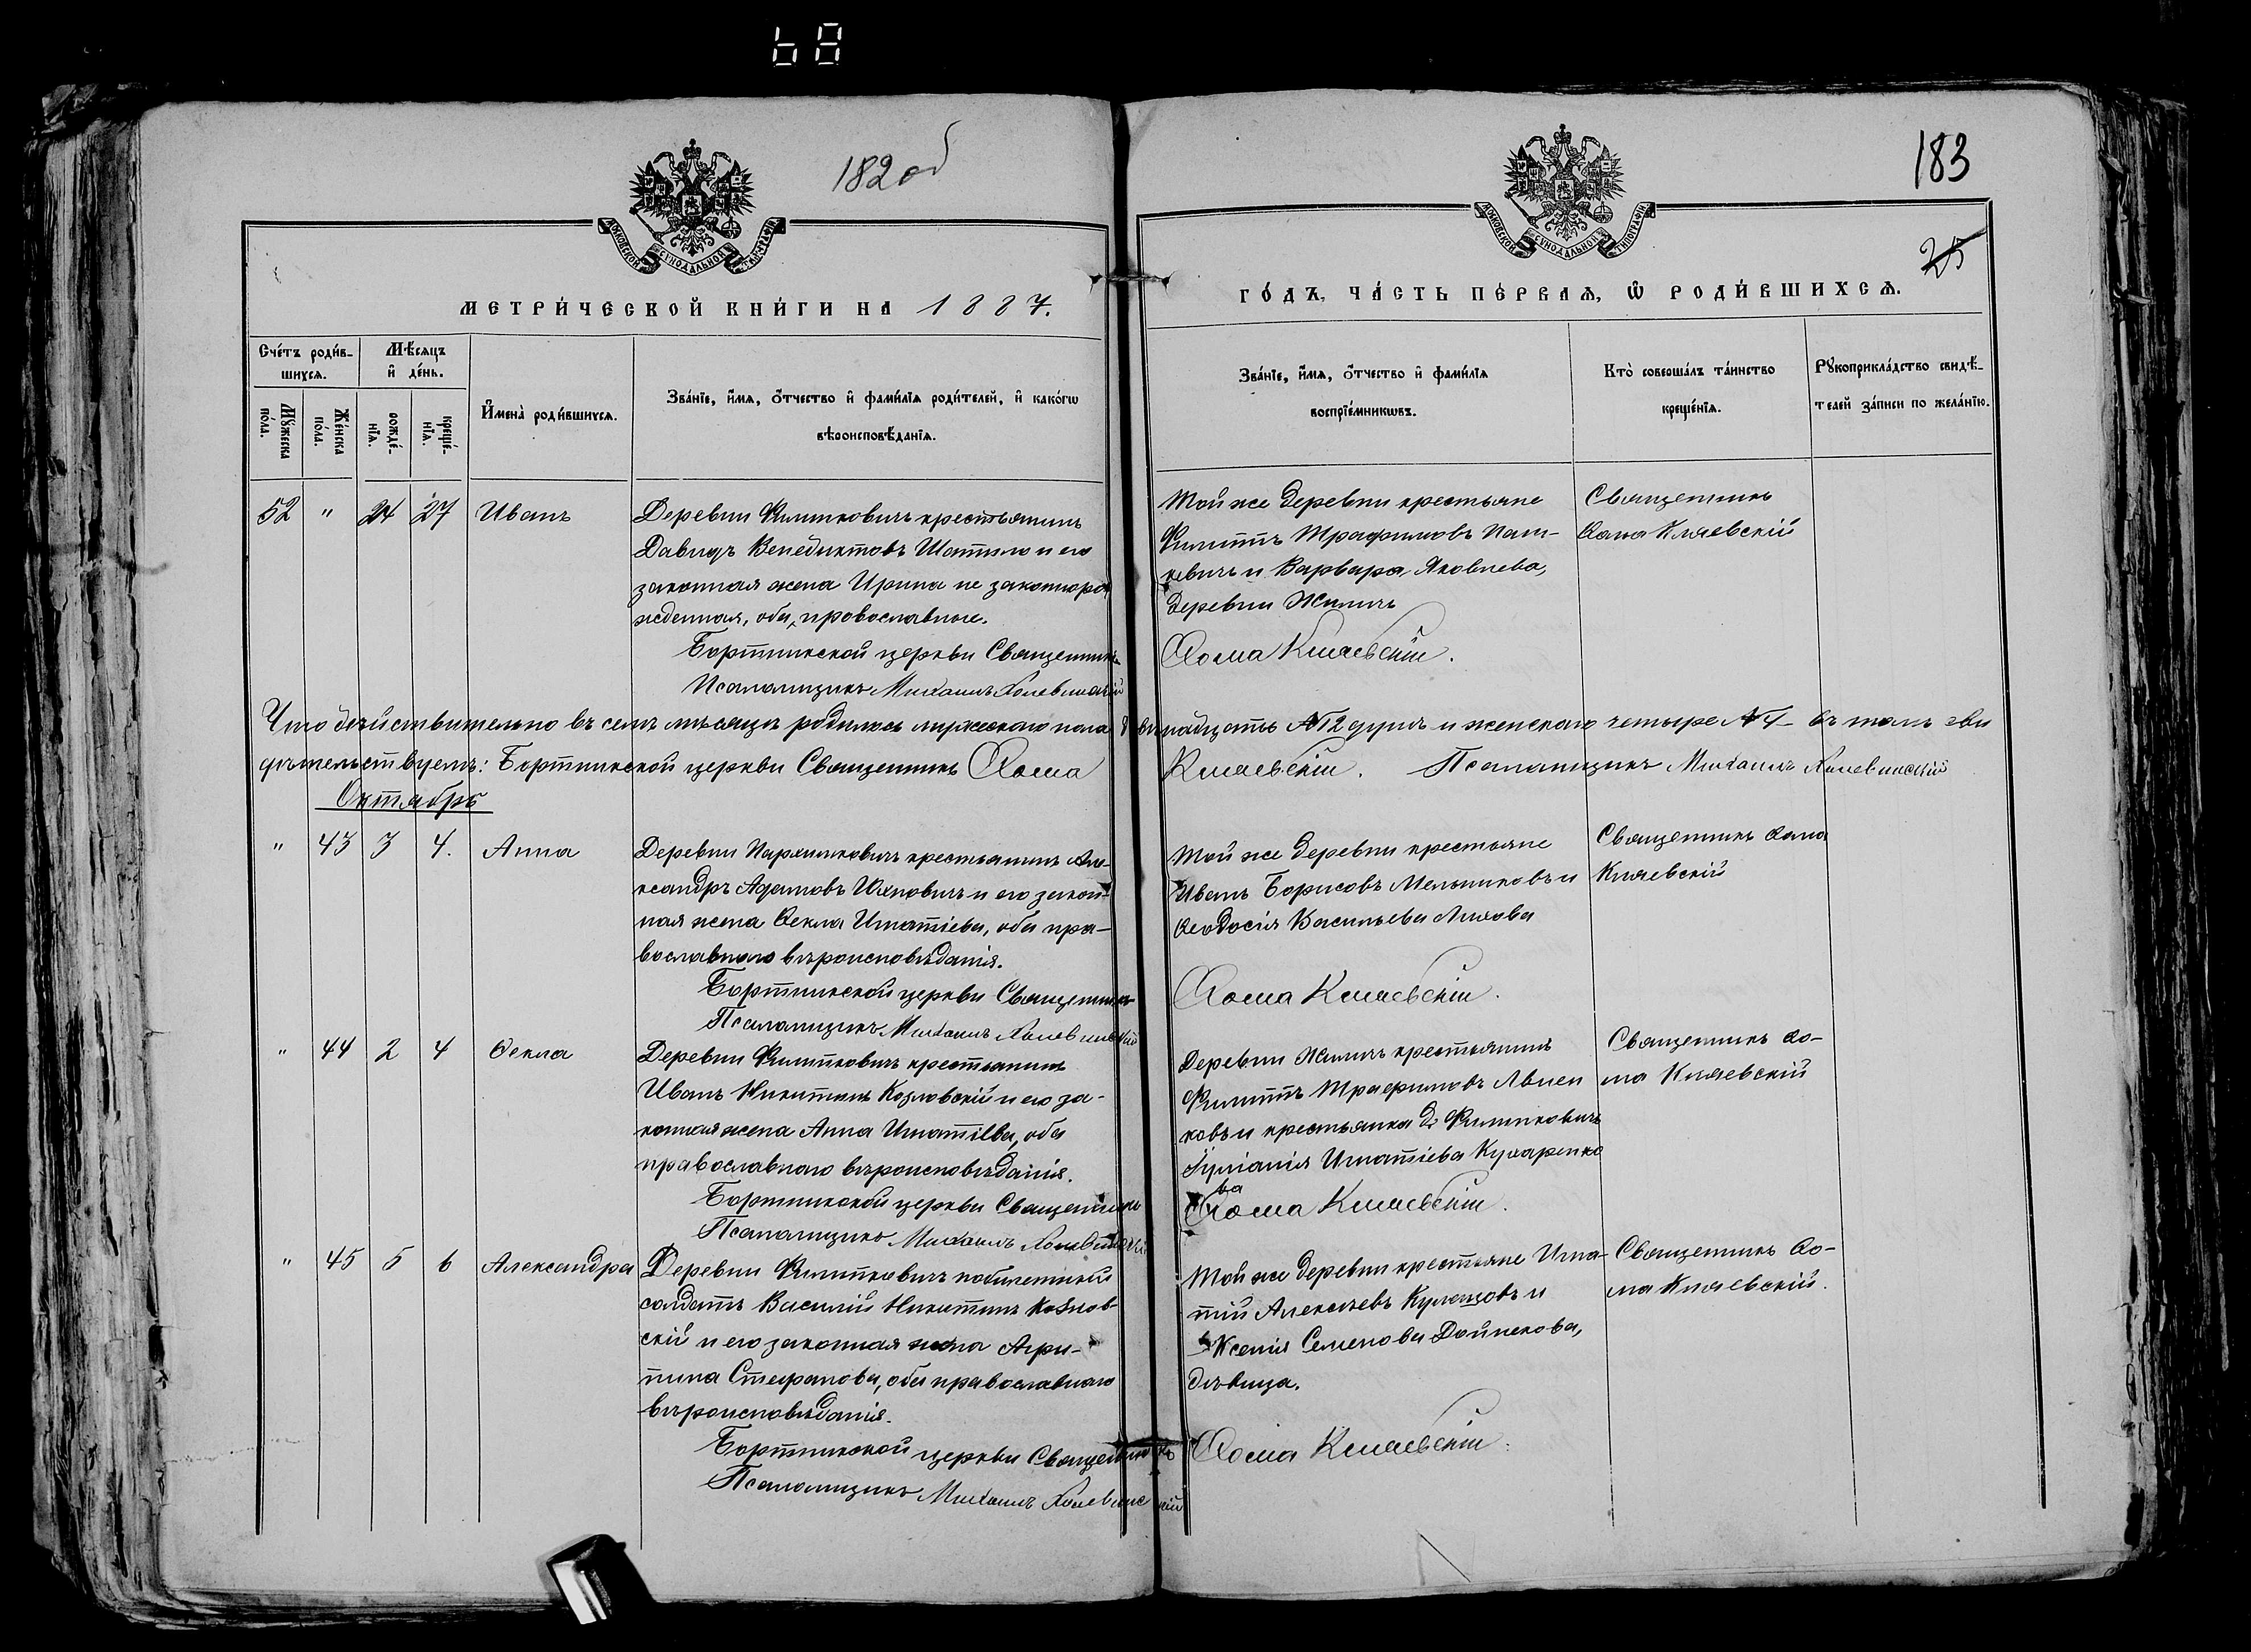 182 об
183
25
МОСКОВСКОЙ СѴНОДАЛЬНОЙ ТИПОГРАФІИ
МОСКОВСКОЙ СѴНОДАЛЬНОЙ ТИПОГРАФІИ
МЕТРИ́ЧЕСКОЙ КНИ́ГИ НА 1887.
ГО́ДЪ, ЧА́СТЬ ПЕ́РВАѦ, Ѡ РОДИ́ВШИХСѦ.
Сче́тъ роди́в-
шихсѧ.
Мѣ́сѧцъ
и҆ де́нь.
Мꙋ́жеска
по́ла.
Же́нска
по́ла.
рожде́-
нїѧ.
креще́-
нїѧ.
И҆мена̀ роди́вшихсѧ.
Зва́нїе, и҆́мѧ, ѻ҆́тчество и҆ фамі́лїѧ роди́телей, и҆ како́гѡ
вѣроисповѣ́данїѧ.
Зва́нїе, и҆́мѧ, ѻ҆́тчество и҆ фамі́лїѧ
воспрїе́мникѡвъ.
Кто̀ соверша́лъ та́инство
креще́нїѧ.
Рꙋкоприкла́дство свидѣ́-
телей за́писи по жела́нїю.
52 " 24 27 Иванъ
Деревни Филиповичъ крестьянинъ
Давидъ Венедиктовъ Шатило и его
законная жена Ирина не законнорож
жденная, оба, православные.
Бортникской церкви Священникъ
Псаломщикъ Михаилъ
Той же деревни крестьяне
Филиппъ Трафимовъ Паш-
кевичъ и Варвара Яковлева,
деревни Жиличъ
Ѳома Кляевскій.
Священникъ
Ѳома Кляевскій
Что дѣйствительно въ семъ мѣсяцѣ родилось мужескаго пола двѣнадцать №12 душъ и женскаго четыре №4 въ томъ сви
дѣтельствуемъ: Бортникской церкви Священникъ Ѳома Кляевскій. Псаломщикъ Михаилъ
Октябрь
" 43 3 4. Анна
Деревни крестьянинъ Але-
ксандръ Адамовъ и его закон-
ная жена Ѳекла Игнатіева, оба пра-
вославнаго вѣроисповѣданія.
Бортникской церкви Священникъ
Псаломщикъ Михаилъ
Той же деревни крестьяне
Иванъ Борисовъ Мельниковъ и
Ѳеодосія Васильева
Ѳома Кляевскій.
Священникъ Ѳома
Кляевскій
" 44 2 4 Ѳекла
Деревни Филиповичъ крестьянинъ
Иванъ Никитинъ Козловскій и его за-
конная жена Анна Игнатіева, оба
православнаго вѣроисповѣданія.
Бортникской церкви Священникъ
Псаломщикъ Михаилъ
Деревни Жиличъ крестьянинъ
Филиппъ Трафимовъ
ковъ и крестьянка д. Филиповичъ
Іуліанія Игнатіева Кухаренко
ва
Ѳома Кляевскій.
Священникъ Ѳо-
ма Кляевскій
" 45 5 6 Александра
Деревни Филиповичъ побилетный
солдатъ Василій Никитинъ Козлов-
скій и его законная жена Агри-
пина Стефанова, оба православнаго
вѣроисповѣданія.
Бортникской церкви Священникъ
Псаломщикъ Михаилъ
Той же деревни крестьяне Игна-
тій Алексѣевъ и
Ксенія Семенова Дойнекова,
дѣвица.
Ѳома Кляевскій.
Священникъ Ѳо-
ма Кляевскій.